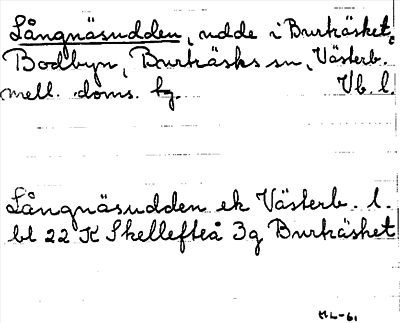 Långnäsudden, udde i Burträsket,
Bodbyn, Burträsks sn, Västerb.
mell. doms. fg. Vb. l.
Långnäsudden ek Västerb. l.
bl 22 K Skellefteå 3g Burträsket
HL-61